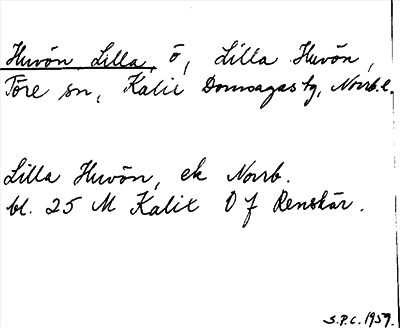 Huvön Lilla, ö, Lilla Huvön,
Töre sn, Kalix Domsagas tg, Norrb.l.
Lilla Huvön, ek Norrb.
bl. 25 M Kalix O f Renskär.
S.P.C. 1959.